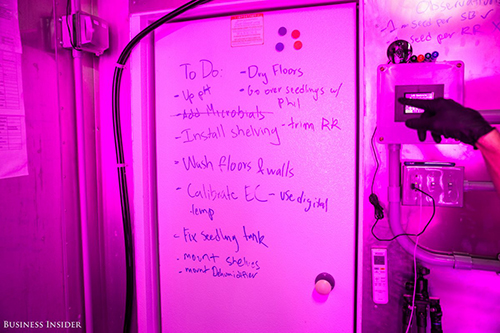 To Do:
- Dry Floors
- Go over seedlings w/ Phil
- Add Microbials
- Install shelving
- trim RR
- Wash floors & walls
- Calibrate EC - use digital temp
- Fix seedling tank
- mount shelving
- mount Dehumidifier
Observations
seed per SB
seed per RR
BUSINESS INSIDER